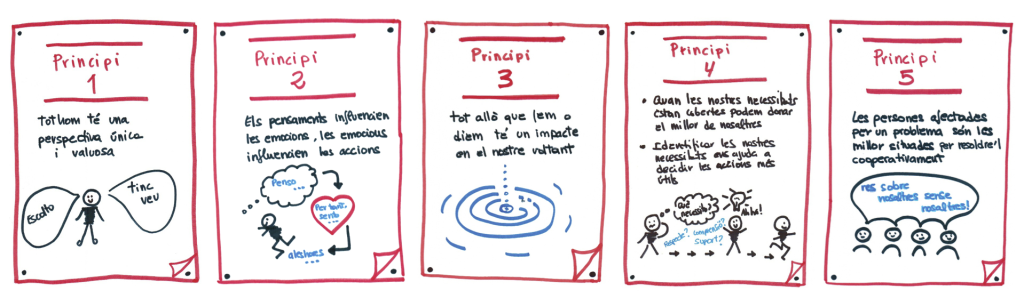 Principi
1
Tothom té una
perspectiva única
i valuosa
Escolto
tinc
veu
Principi
2
Els pensaments influencien
les emocions, les emocions
influencien les accions
Penso
...
Per tant,
sento
...
aleshores
...
Principi
3
Tot allò que fem o
diem té un impacte
en el nostre voltant
Principi
4
• Quan les nostres necessitats
estan cobertes podem donar
el millor de nosaltres
• Identificar les nostres
necessitats ens ajuda a
decidir les accions més
útils
Què
necessito?
Respecte? Comprensió?
Suport?
Ahha!
Principi
5
Les persones afectades
per un problema són les
millor situades per resoldre'l
cooperativament
res sobre
nosaltres sense
nosaltres!